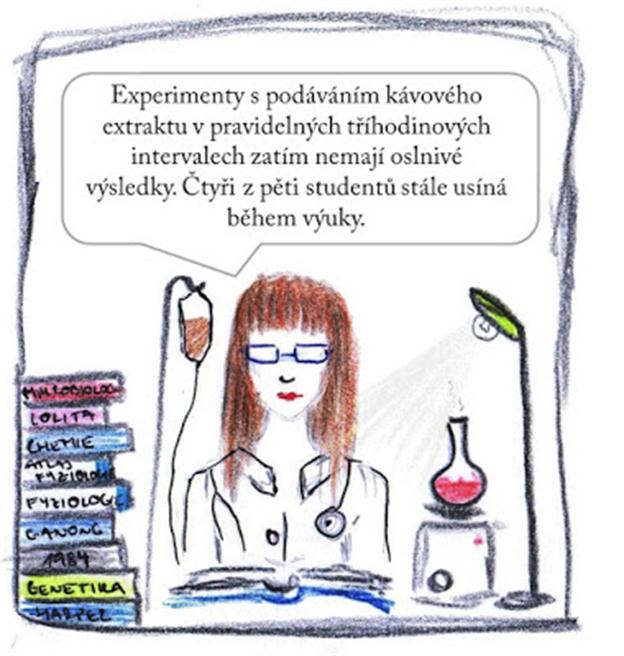 Experimenty s podáváním kávového
extraktu v pravidelných tříhodinových
intervalech zatím nemají oslnivé
výsledky. Čtyři z pěti studentů stále usíná
během výuky.
MIKROBIOLOG
LOLITA
CHEMIE
ATLAS
FYZIOLOGIE
FYZIOLOGIE
GANONG
1984
GENETIKA
HARPER